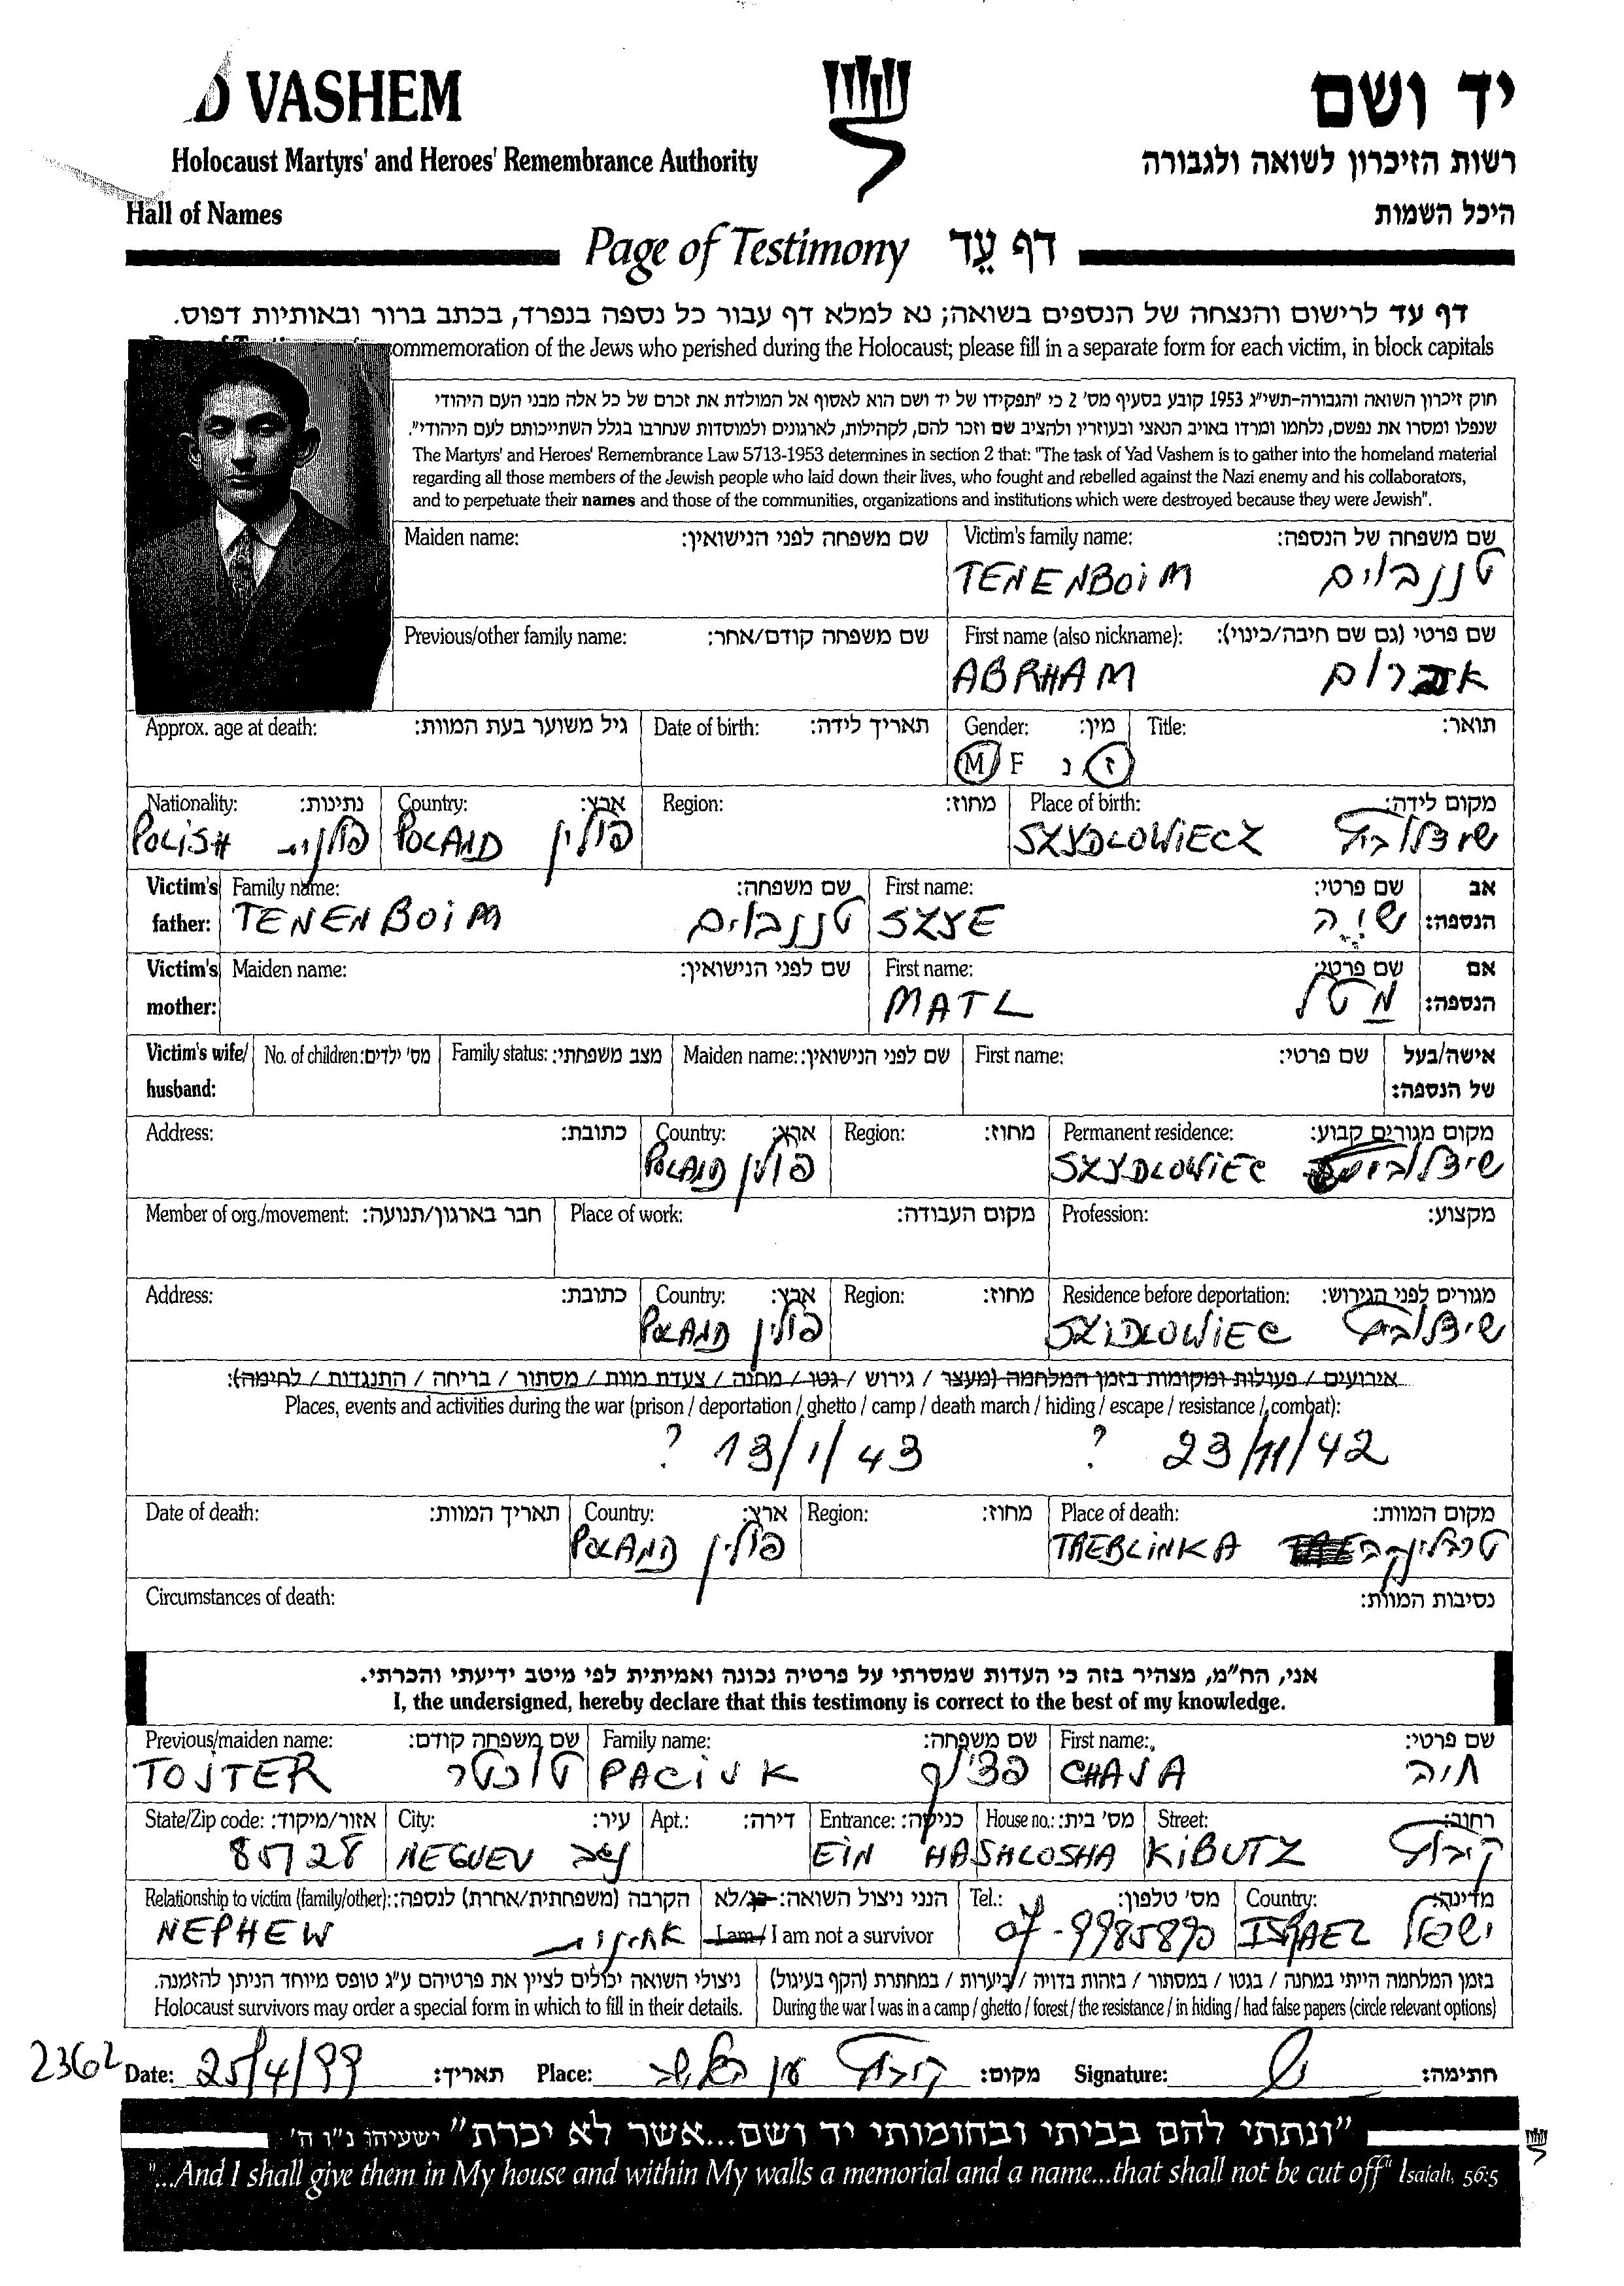 D VASHEM
יד ושם
Holocaust Martyrs' and Heroes' Remembrance Authority
רשות הזיכרון לשואה ולגבורה
Hall of Names
היכל השמות
Page of Testimony דף עֵד
דף עד לרישום והנצחה של הנספים בשואה; נא למלא דף עבור כל נספה בנפרד, בכתב ברור ובאותיות דפוס.
commemoration of the Jews who perished during the Holocaust; please fill in a separate form for each victim, in block capitals
חוק זיכרון השואה והגבורה-תשי"ג 1953 קובע בסעיף מס' 2 כי "תפקידו של יד ושם הוא לאסוף אל המולדת את זכרם של כל אלה מבני העם היהודי
שנפלו ומסרו את נפשם, נלחמו ומרדו באויב הנאצי ובעוזריו ולהציב שם וזכר להם, לקהילות, לארגונים ולמוסדות שנחרבו בגלל השתייכותם לעם היהודי".
The Martyrs' and Heroes' Remembrance Law 5713-1953 determines in section 2 that: "The task of Yad Vashem is to gather into the homeland material
regarding all those members of the Jewish people who laid down their lives, who fought and rebelled against the Nazi enemy and his collaborators,
and to perpetuate their names and those of the communities, organizations and institutions which were destroyed because they were Jewish".
Maiden name: שם משפחה לפני הנישואין: Victim's family name: שם משפחה של הנספה:
TENENBOIM טננבוים
Previous/other family name: שם משפחה קודם/אחר: First name (also nickname): שם פרטי (גם שם חיבה/כינוי):
ABRHAM אברום
Approx. age at death: גיל משוער בעת המוות: Date of birth: תאריך לידה: Gender: מין: Title: תואר:
M F נ ז
Nationality: נתינות: Country: ארץ: Region: מחוז: Place of birth: מקום לידה:
POLISH פולנית POLAND פולין SZYDLOWIECZ
Victim's father: Family name: שם משפחה: First name: שם פרטי: אב הנספה:
TENENBOIM טננבוים SZYE שיה
Victim's mother: Maiden name: שם לפני הנישואין: First name: שם פרטי: אם הנספה:
MATL מטל
Victim's wife/ husband: No. of children: מס' ילדים: Family status: מצב משפחתי: Maiden name: שם לפני הנישואין: First name: שם פרטי: אישה/בעל של הנספה:
Address: כתובת: Country: ארץ: Region: מחוז: Permanent residence: מקום מגורים קבוע:
POLAND פולין SZYDLOWIEC
Member of org./movement: חבר בארגון/תנועה: Place of work: מקום העבודה: Profession: מקצוע:
Address: כתובת: Country: ארץ: Region: מחוז: Residence before deportation: מגורים לפני הגירוש:
POLAND פולין SZIDLOWIEC
אירועים / פעולות ומקומות בזמן המלחמה (מעצר / גירוש / גטו / מחנה / צעדת מוות / מסתור / בריחה / התנגדות / לחימה):
Places, events and activities during the war (prison / deportation / ghetto / camp / death march / hiding / escape / resistance / combat):
? 13/1/43 ? 23/11/42
Date of death: תאריך המוות: Country: ארץ: Region: מחוז: Place of death: מקום המוות:
POLAND פולין TREBLINKA טרבלינקה
Circumstances of death: נסיבות המוות:
אני, הח"מ, מצהיר בזה כי העדות שמסרתי על פרטיה נכונה ואמיתית לפי מיטב ידיעתי והכרתי.
I, the undersigned, hereby declare that this testimony is correct to the best of my knowledge.
Previous/maiden name: שם משפחה קודם: Family name: שם משפחה: First name: שם פרטי:
TOJTER PACIUK CHAJA חיה
State/Zip code: אזור/מיקוד: City: עיר: Apt.: דירה: Entrance: כניסה: House no.: מס' בית: Street: רחוב:
85128 NEGUEV נגב EIN HASHLOSHA KIBUTZ קיבוץ
Relationship to victim (family/other): הקרבה (משפחתית/אחרת) לנספה: הנני ניצול השואה: כן/לא Tel.: מס' טלפון: Country: מדינה:
NEPHEW אחינית I am / I am not a survivor 07-9985890 ISRAEL ישראל
ניצולי השואה יכולים לציין את פרטיהם ע"ג טופס מיוחד הניתן להזמנה. בזמן המלחמה הייתי במחנה / בגטו / במסתור / בזהות בדויה / ביערות / במחתרת (הקף בעיגול)
Holocaust survivors may order a special form in which to fill in their details. During the war I was in a camp / ghetto / forest / the resistance / in hiding / had false papers (circle relevant options)
2362 Date: 25/4/99 תאריך: Place: קיבוץ עין השלשה מקום: Signature: חתימה:
"ונתתי להם בביתי ובחומותי יד ושם...אשר לא יכרת" ישעיהו נ"ו ה'
"...And I shall give them in My house and within My walls a memorial and a name...that shall not be cut off" Isaiah, 56:5